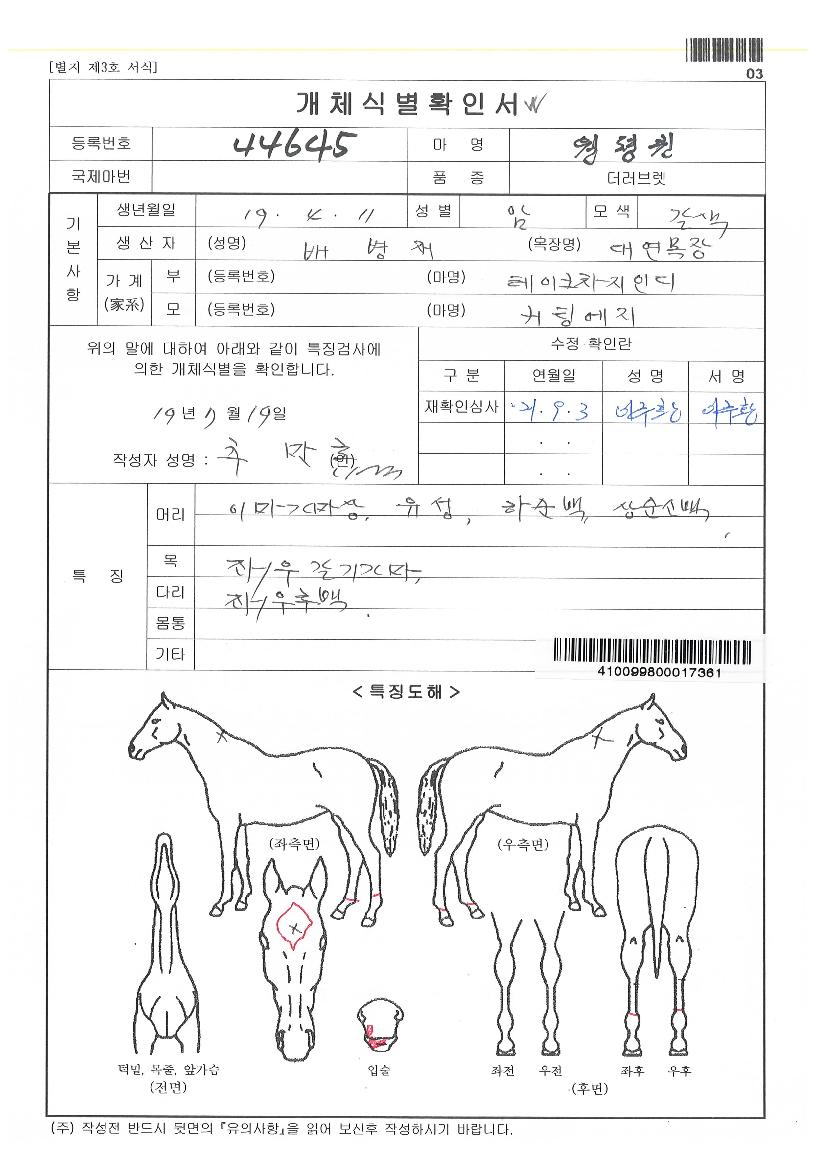 [별지 제3호 서식]
03
개체식별확인서
등록번호 44645 마 명 월령퀸
국제마번 품 종 더러브렛
기본사항
생년월일 19. 4. 11 성 별 암 모 색 갈색
생 산 자 (성명) 배 병 재 (목장명) 대연목장
가 계 (家系) 부 (등록번호) (마명) 테이크차지인디
모 (등록번호) (마명) 커팅에지
위의 말에 대하여 아래와 같이 특징검사에
의한 개체식별을 확인합니다.
19년 7월 19일
작성자 성명 : (인)
수정 확인란
구 분 연월일 성 명 서 명
재확인심사 21. 9. 3
특 징
머리 이마가마상, 유성, 하순백, 상순소백,
목 좌/우 갈기가마,
다리 좌/우후백.
몸통
기타
410099800017361
< 특징도해 >
(좌측면) (우측면)
턱밑, 목줄, 앞가슴
(전면)
입술
좌전 우전 좌후 우후
(후면)
(주) 작성전 반드시 뒷면의 『유의사항』을 읽어 보신후 작성하시기 바랍니다.